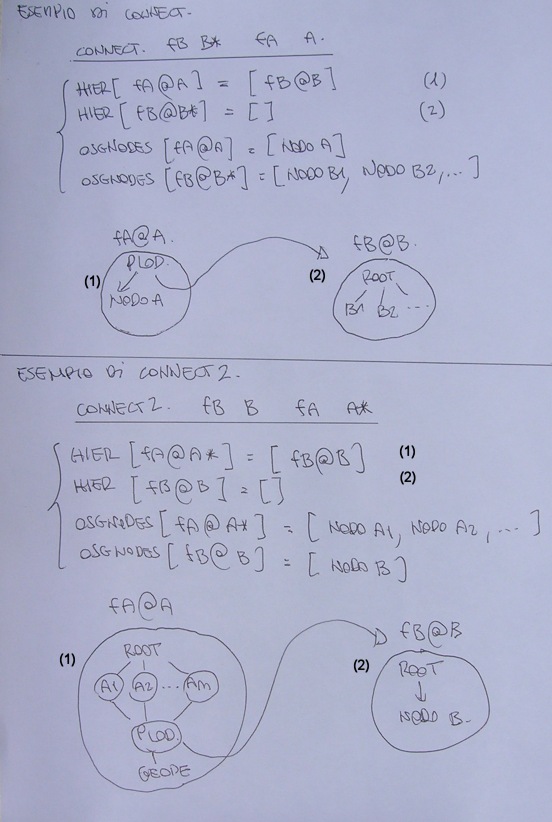 ESEMPIO di CONNECT.
CONNECT. fB B* fA A.
HIER[ fA@A ] = [ fB@B ] (1)
HIER[ fB@B* ] = [ ] (2)
OSGNODES [fA@A] = [NODO A]
OSGNODES [fB@B*] = [NODO B1, NODO B2,...]
fA@A.
fB@B.
PLOD.
(1)
NODO A
(2)
ROOT
B1 B2 ...
ESEMPIO di CONNECT2.
CONNECT2. fB B fA A*
HIER [fA@A*] = [ fB@B ] (1)
HIER [fB@B] = [ ] (2)
OSGNODES [fA@A*] = [ NODO A1, NODO A2, ... ]
OSGNODES [fB@B] = [ NODO B ]
fA@A
fB@B
(1)
ROOT
A1 A2 ... Am
PLOD.
GEODE
(2)
ROOT
NODO B.